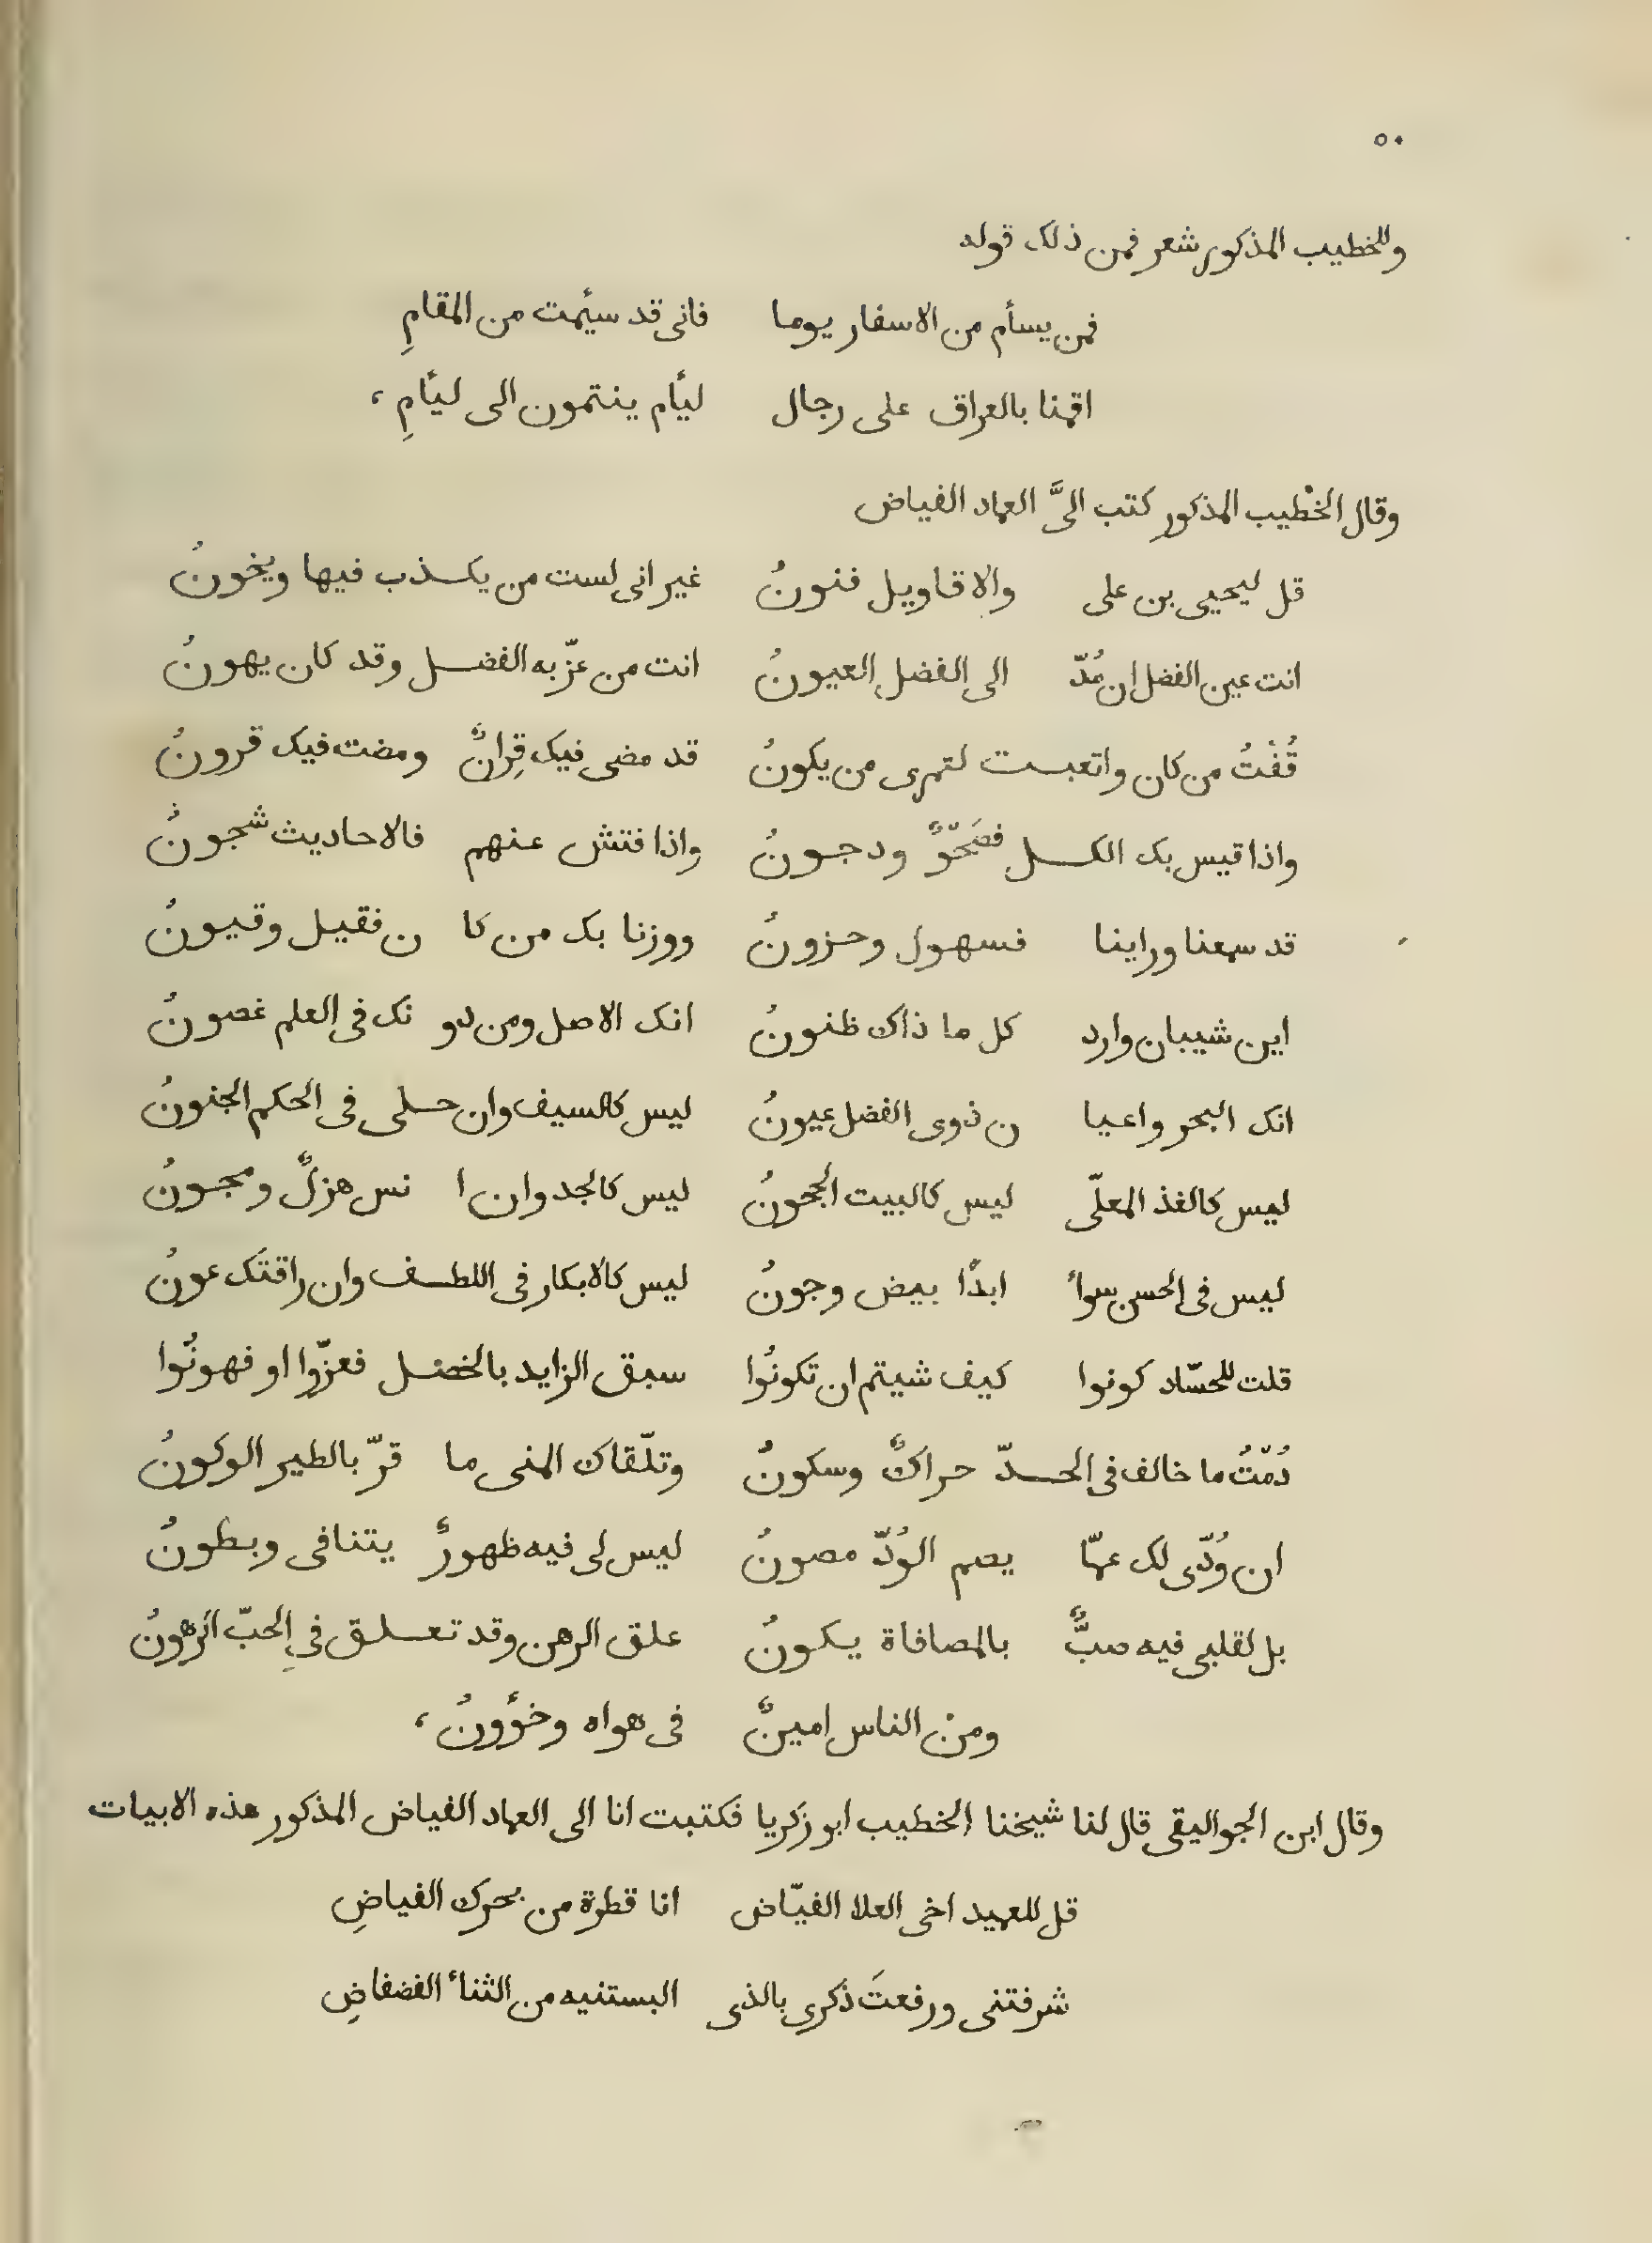 ٥٠
وللخطيب المذكور شعر فمن ذلك قوله
فمن يسأم من الاسفار يوما فانى قد سئمت من المقامِ
اقمنا بالعراق على رجال لئام ينتمون الى لئامِ ،
وقال الخطيب المذكور كتب الىَّ العماد الفياض
قل ليحيى بن على والاقاويل فنونُ غير انى لست من يكـذب فيها ويخونُ
انت عين الفضل ان مُدّ الى الفضل العيونُ انت من عزّ به الفضـل وقد كان يهونُ
فُقْتُ من كان واتعبـت لتمرى من يكونُ قد مضى فيك قِرانٌ ومضت فيك قرونُ
واذا قيس بك الكـل فصَحْوٌ ودجونُ واذا فتش عنهم فالاحاديث شجونُ
قد سمعنا وراينا فسهول وحزونُ ووزنا بك من كا ن فقيل وقيونُ
اين شيبان وارد كل ما ذاك ظنونُ انك الاصل ومن دو نك فى العلم غصونُ
انك البحر واعيا ن ذوى الفضل عيونُ ليس كالسيف وان حـلى فى الحكم الجنونُ
ليس كالفذ المعلّى ليس كالبيت الحجونُ ليس كالجد وان ا نس هزلٌ ومجونُ
ليس فى الحسن سواءٌ ابدًا بيض وجونُ ليس كالابكار فى اللطـف وان راقتَك عونُ
قلت للحسّاد كونوا كيف شيتم ان تكونُوا سبق الزايد بالخصـل فعزّوا او فهونُوا
دُمْتُ ما خالف فى الحـدّ حراكٌ وسكونُ وتلّقاك المنى ما قرّ بالطير الوكونُ
ان وُدّى لك عمّا يصم الوُدّ مصونُ ليس لى فيه ظهورٌ يتنافى وبطونُ
بل لقلبى فيه صبٌّ بالمصافاة يكونُ علق الرهن وقد تعـلـق فى الحبّ الرهونُ
ومنْ الناس امينٌ فى هواه وخؤونُ ،
وقال ابن الجواليقى قال لنا شيخنا الخطيب ابو زكريا فكتبت انا الى العماد الفياض المذكور هذه الابيات
قل للعميد اخى العلا الفيّاض انا قطرة من بحرك الفياضِ
شرفتنى ورفعتَ ذكرى بالذى البستنيه من الثناءٔ الفضفاضِ